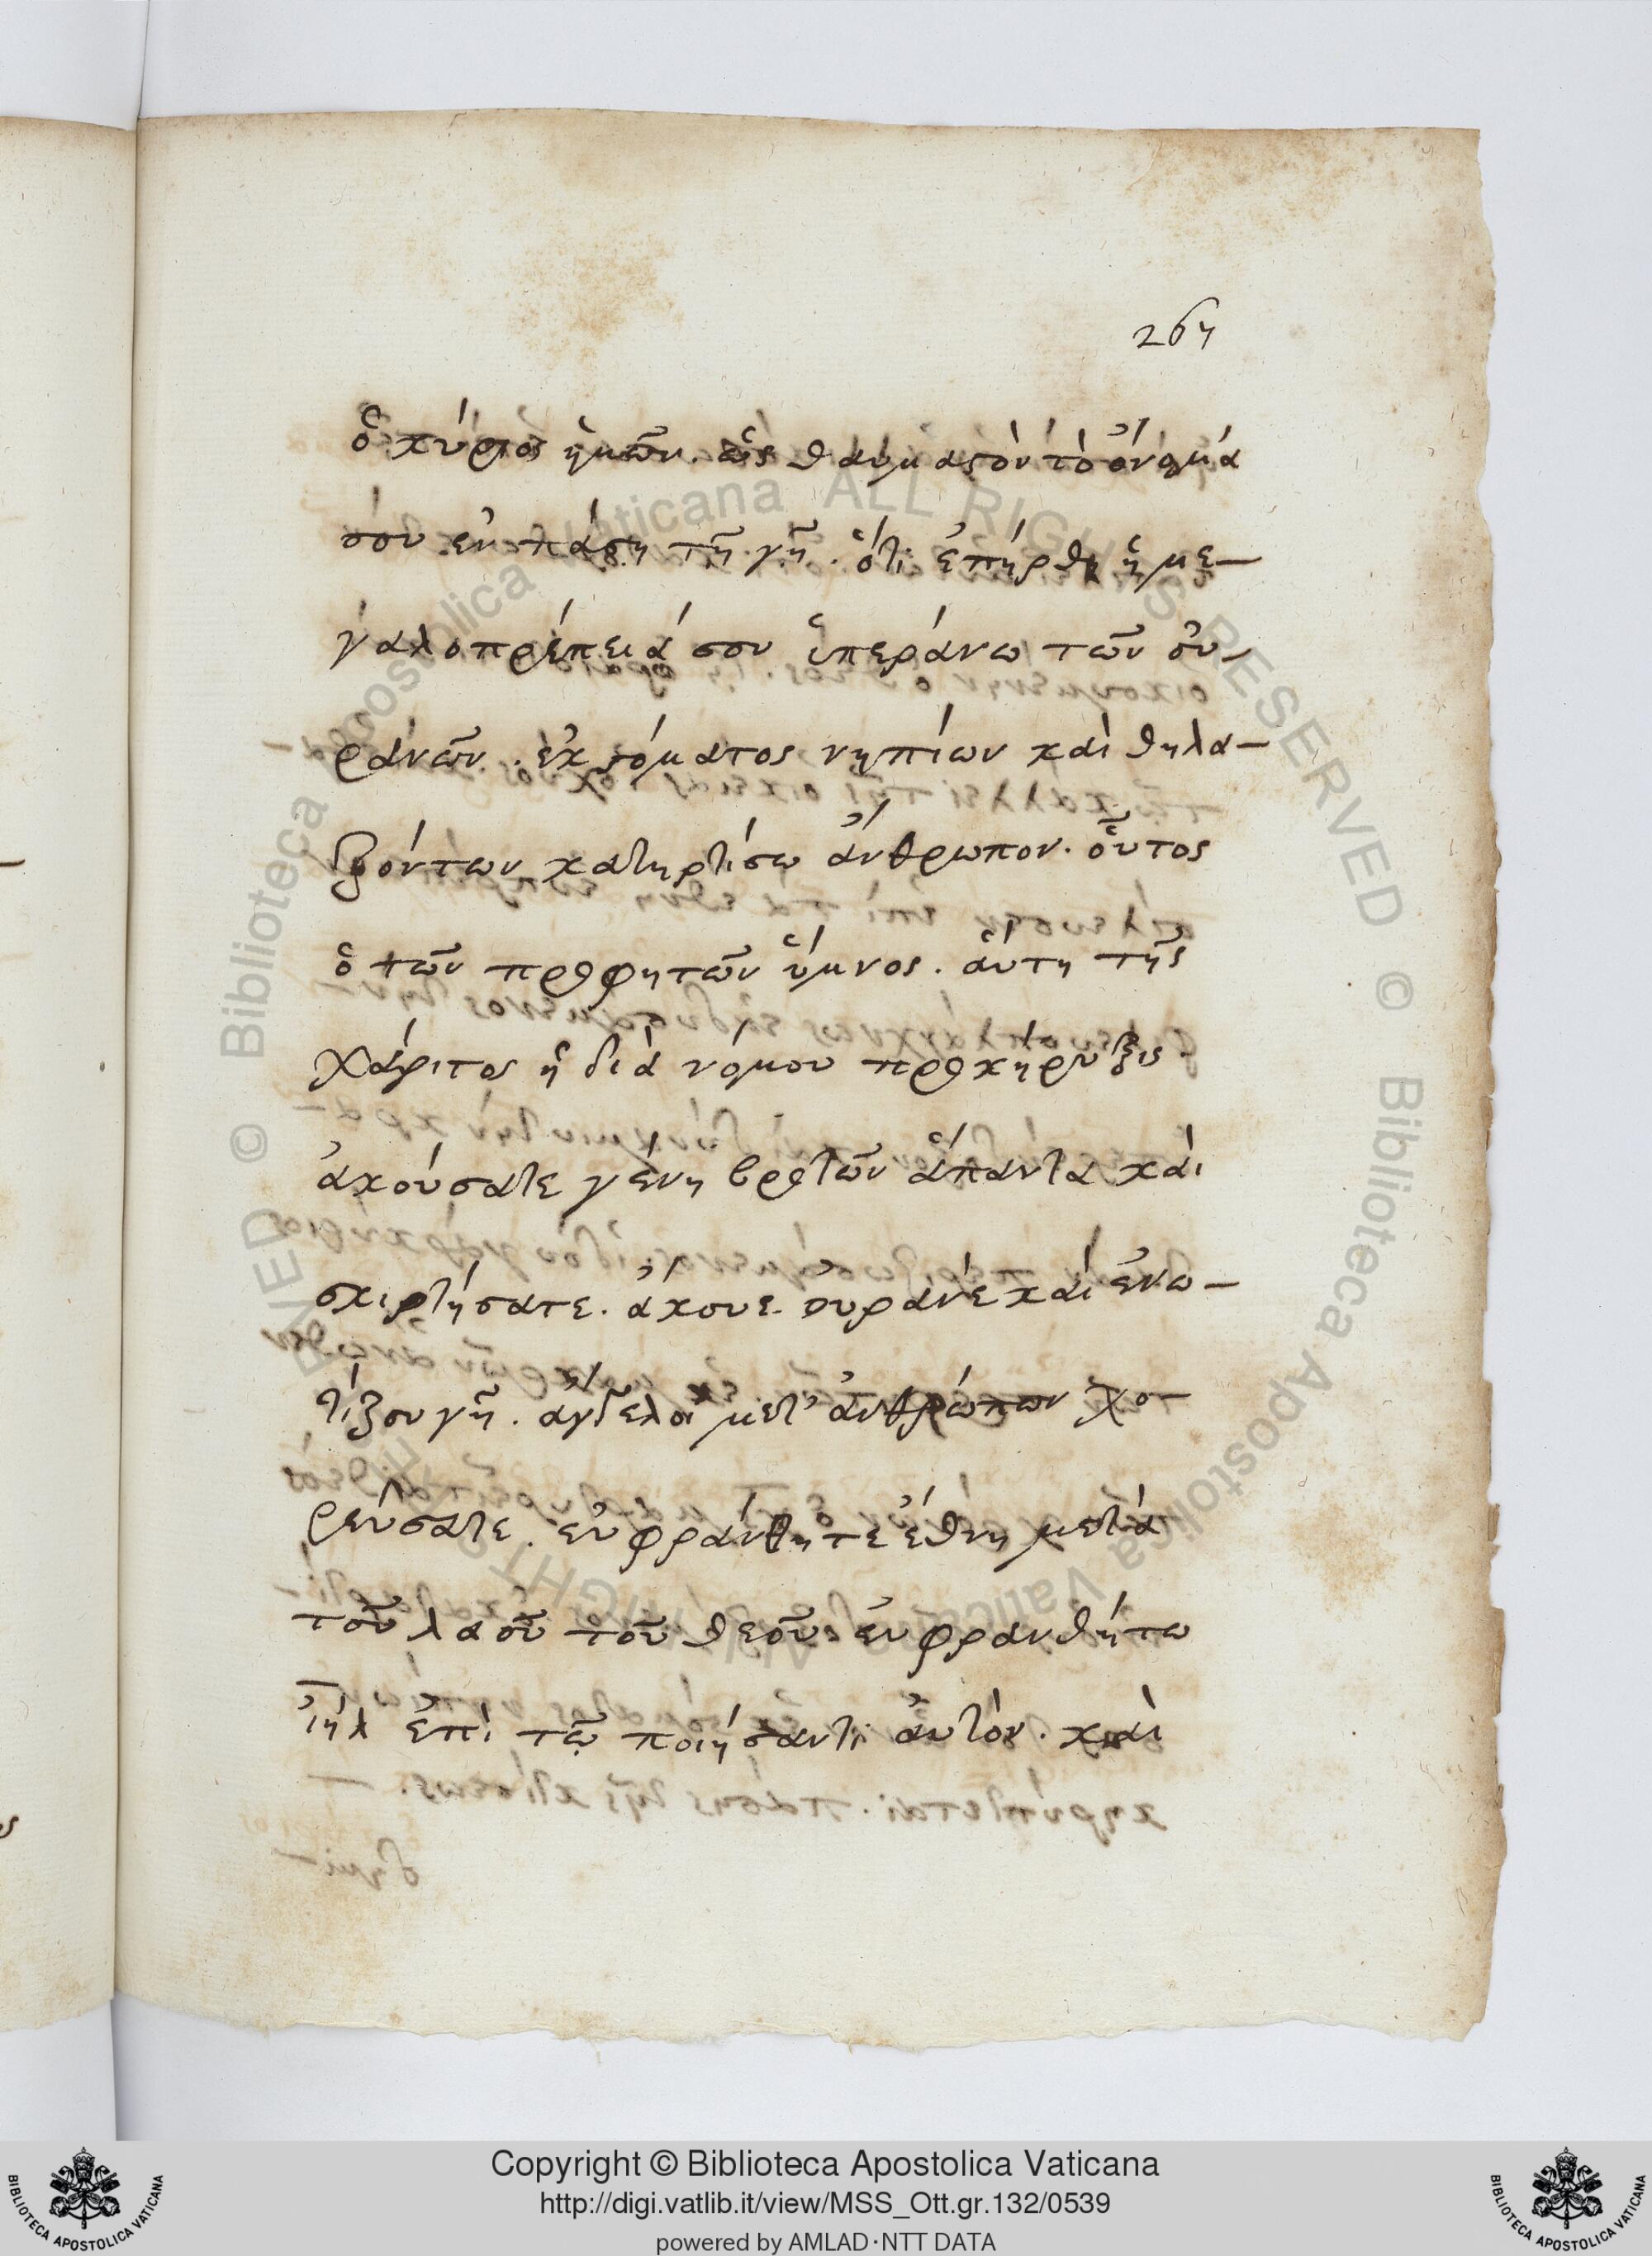 267
ὁ κύριος ἡμῶν. ὡς θαυμαστὸν τὸ ὄνομά
σου ἐν πάση τῆ γῆ. ὅτι ἐπήρθη ἡ με-
γαλοπρέπειά σου ὑπεράνω τῶν οὐ-
ρανῶν. ἐκ στόματος νηπίων καὶ θηλα-
ζόντων κατηρτίσω ἄνθρωπον. οὗτος
ὁ τῶν προφητῶν ὕμνος. ἁύτη τῆς
χάριτος ἡ διὰ νόμου προκήρυξις.
ἀκούσατε γένη βροτῶν ἅπαντα καὶ
σκιρτήσατε. ἄκουε οὐρανὲ καὶ ἐνω-
τίζου γῆ. ἄγγελοι μετ' ἀνθρώπων χο-
ρεύσατε. εὐφράνθητε ἔθνη μετὰ
τοῦ λαοῦ τοῦ θεοῦ. εὐφρανθήτω
ἰηλ ἐπὶ τῶ ποιήσαντι ἀυτὸν. καὶ
© Biblioteca Apostolica Vaticana ALL RIGHTS RESERVED
© Biblioteca Apostolica Vaticana ALL RIGHTS RESERVED
Copyright © Biblioteca Apostolica Vaticana
http://digi.vatlib.it/view/MSS_Ott.gr.132/0539
powered by AMLAD·NTT DATA
BIBLIOTECA APOSTOLICA VATICANA
BIBLIOTECA APOSTOLICA VATICANA